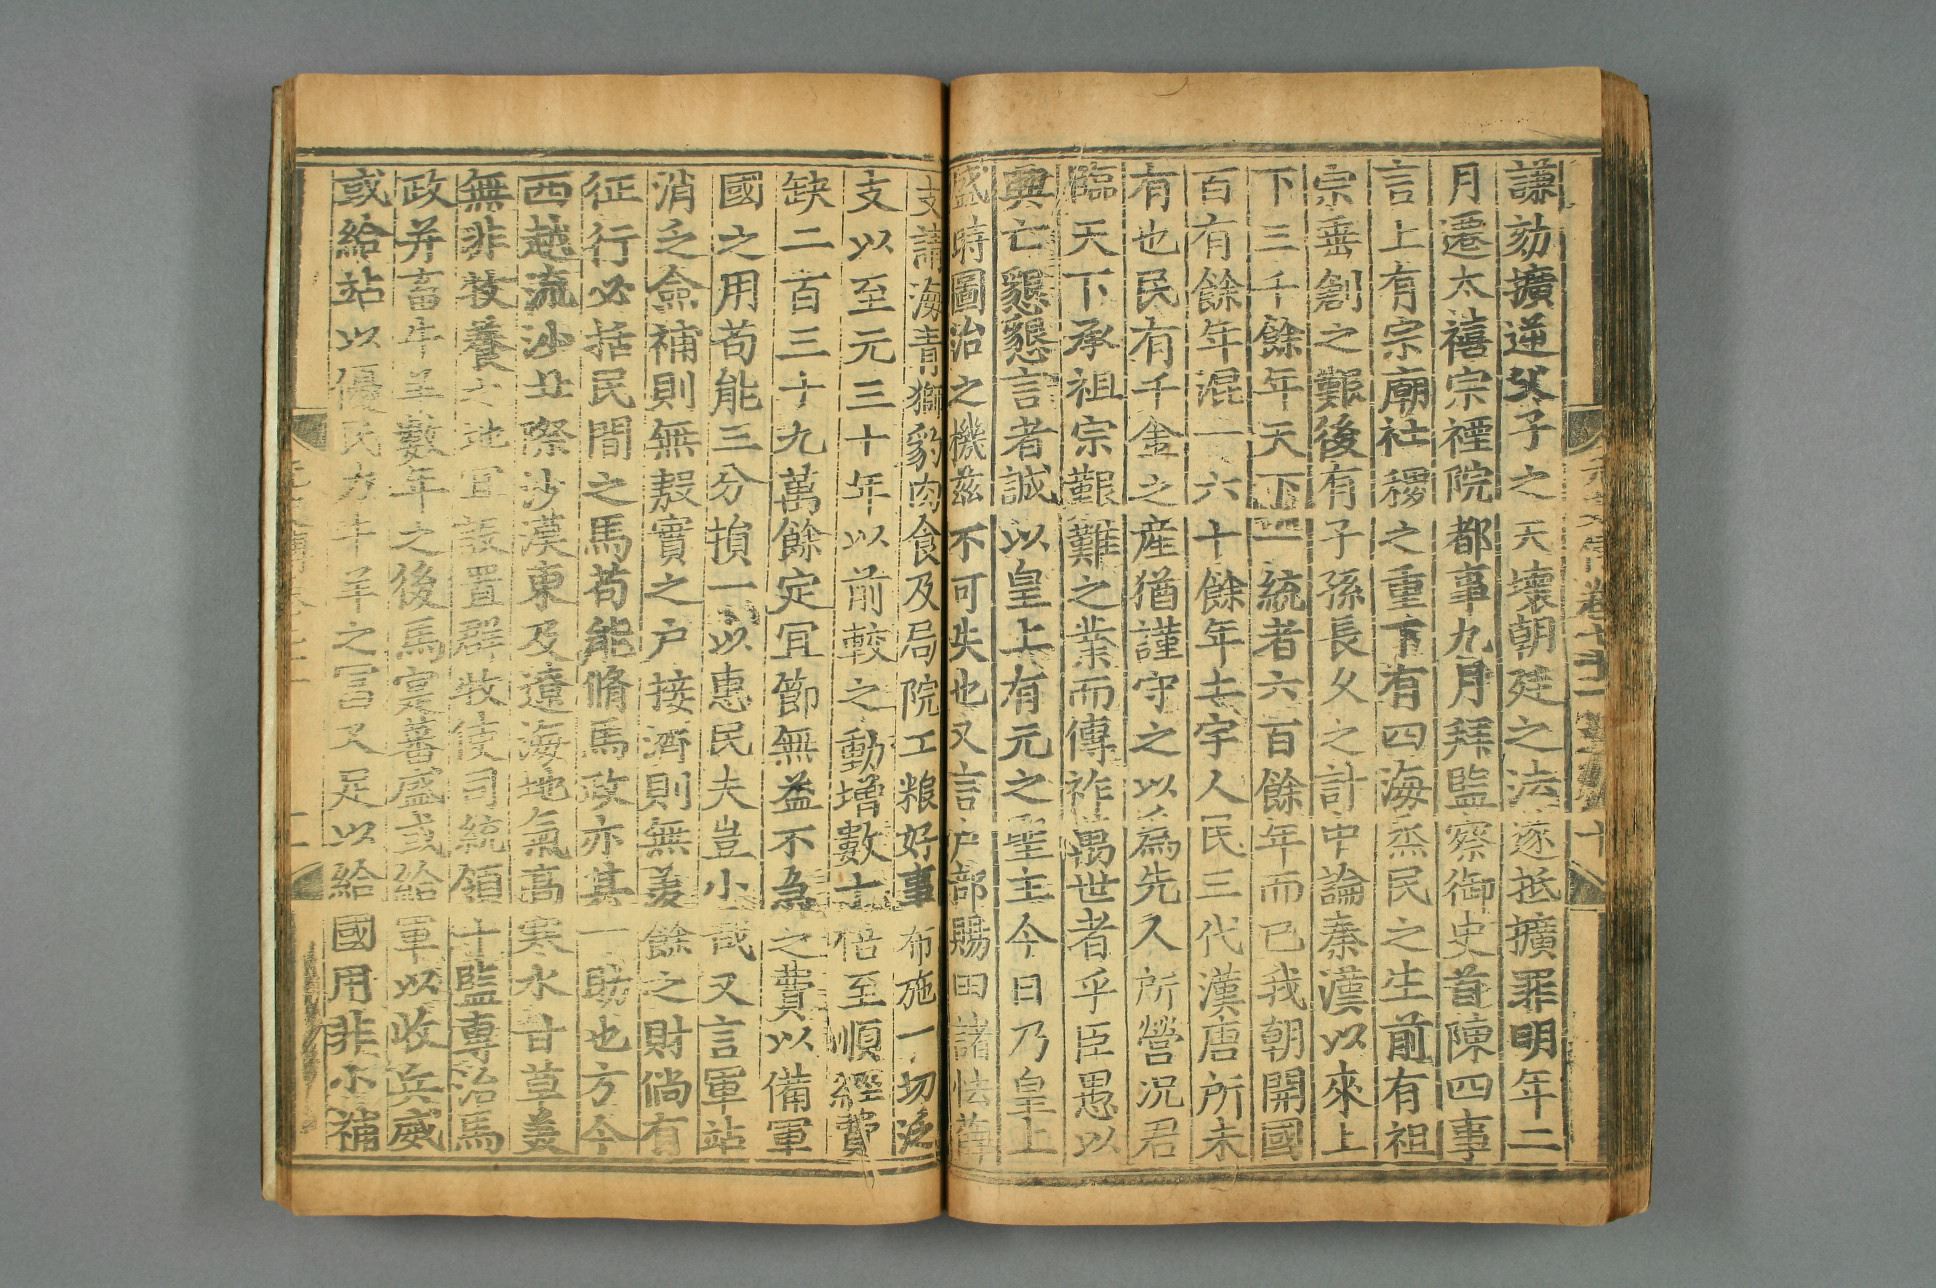 謙劾擴逆父子之天壞朝廷之法遂抵擴罪明年二
月遷太禧宗禋院都事九月拜監察御史首陳四事
言上有宗廟社稷之重下有四海烝民之生前有祖
宗垂創之艱後有子孫長久之計中論秦漢以來上
下三千餘年天下一統者六百餘年而已我朝開國
百有餘年混一六十餘年土宇人民三代漢唐所未
有也民有千金之產猶謹守之以為先人所營況君
臨天下承祖宗艱難之業而傳祚萬世者乎臣愚以
興亡懇懇言者誠以皇上有元之聖主今日乃皇上
盛時圖治之機茲不可失也又言戶部賜田諸怯薛
支請海青獅豹肉食及局院工粮好事布施一切泛
支以至元三十年以前較之動增數十倍至順經費
缺二百三十九萬餘定宜節無益不急之費以備軍
國之用苟能三分損一以惠民夫豈小哉又言軍站
消乏僉補則無殷實之戶接濟則無羨餘之財倘有
征行必括民間之馬苟能脩馬政亦其一助也方今
西越流沙北際沙漠東及遼海地氣高寒水甘草美
無非牧養之地宜設置群牧使司統領十監專治馬
政并畜牛羊數年之後馬實蕃盛或給軍以收兵威
或給站以優民力牛羊之富又足以給國用非小補